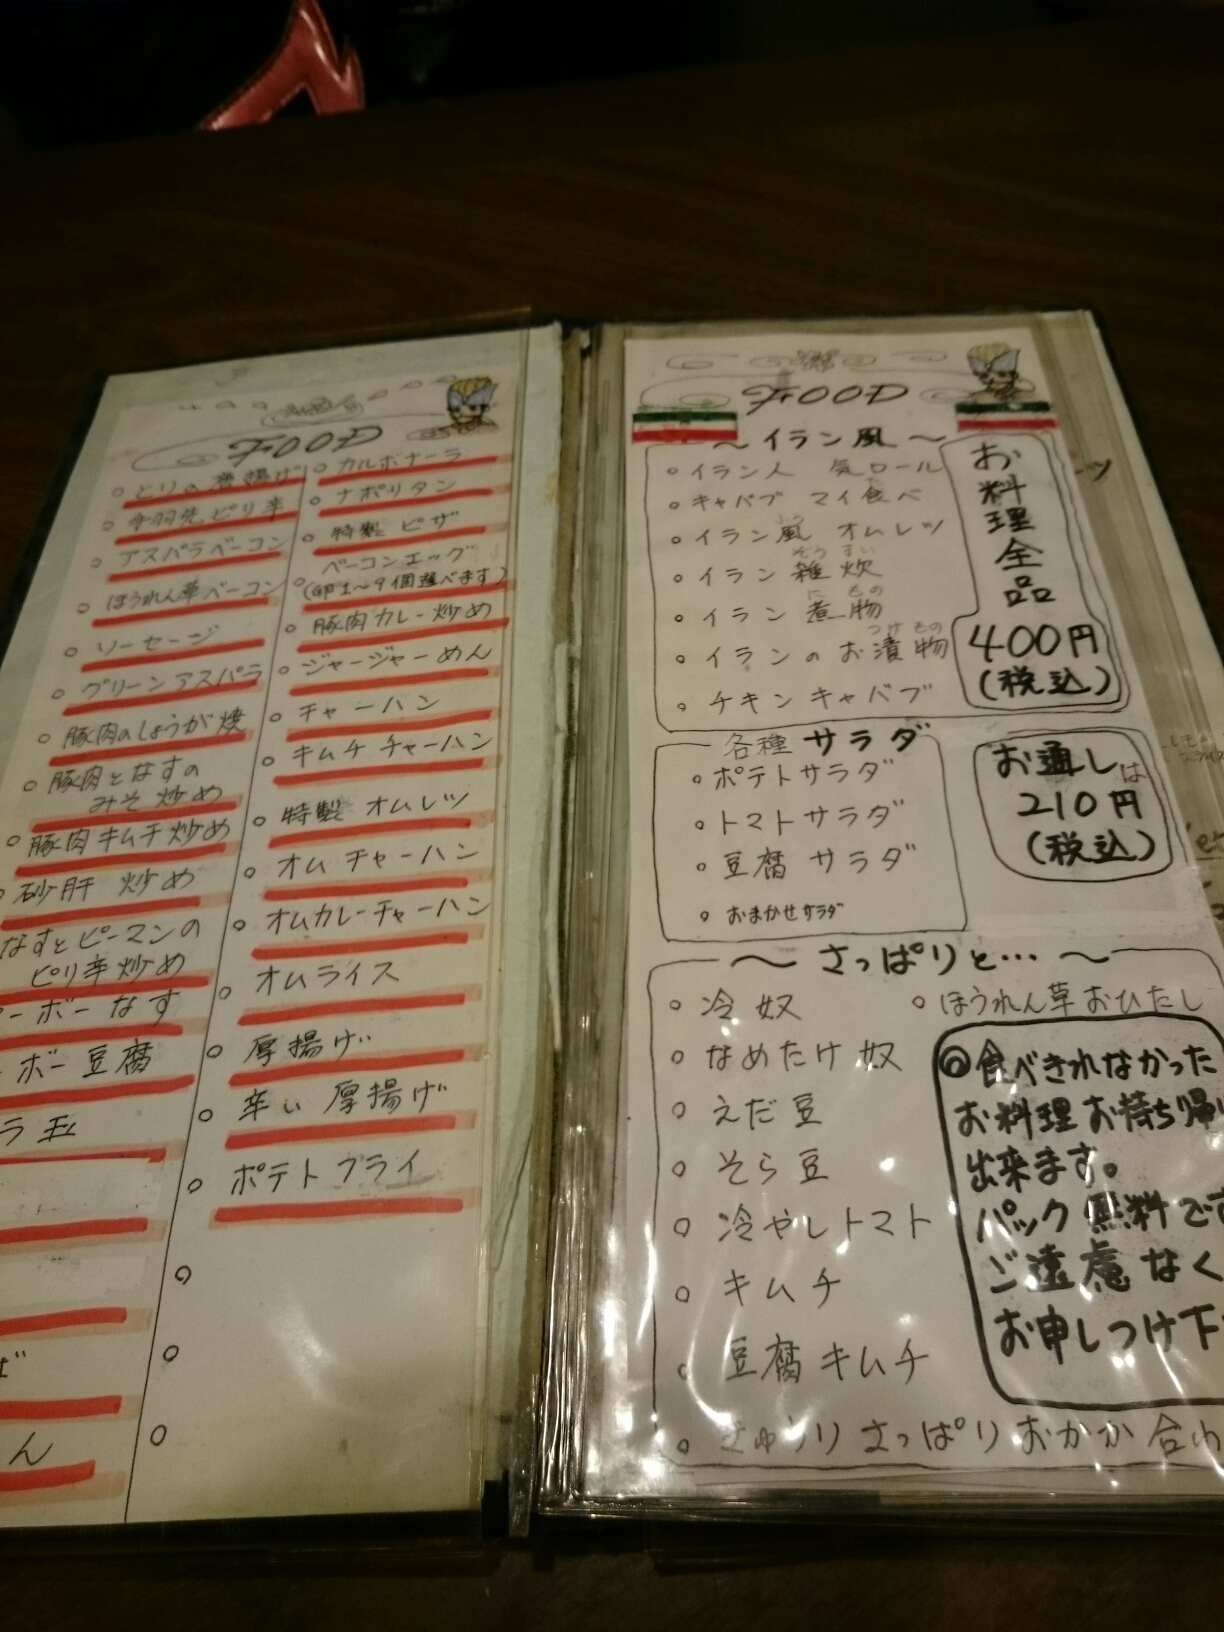 FOOD
とりの唐揚げ
手羽先ピリ辛
アスパラベーコン
ほうれん草ベーコン
ソーセージ
グリーンアスパラ
豚肉のしょうが焼
豚肉となすの
みそ炒め
豚肉キムチ炒め
砂肝 炒め
なすとピーマンの
ピリ辛炒め
ーボーなす
ボー豆腐
ラ玉
ん
カルボナーラ
ナポリタン
特製 ピザ
ベーコンエッグ
(卵1〜9個選べます)
豚肉カレー炒め
ジャージャーめん
チャーハン
キムチ チャーハン
特製 オムレツ
オム チャーハン
オムカレーチャーハン
オムライス
厚揚げ
辛い 厚揚げ
ポテト フライ
FOOD
〜イラン風〜
イラン人 気ロール
キャバブ マイ食べ
イラン風 オムレツ
イラン 雑炊
イラン 煮物
イランの お漬物
チキン キャバブ
お料理全品
400円
(税込)
各種 サラダ
ポテトサラダ
トマトサラダ
豆腐 サラダ
おまかせサラダ
お通しは
210円
(税込)
〜 さっぱりと… 〜
冷奴
ほうれん草おひたし
なめたけ奴
えだ豆
そら豆
冷やしトマト
キムチ
豆腐キムチ
きゅうり さっぱり おかか 合わ
◎食べきれなかった
お料理 お持ち帰り
出来ます。
パック 無料で
ご遠慮なく
お申しつけ下